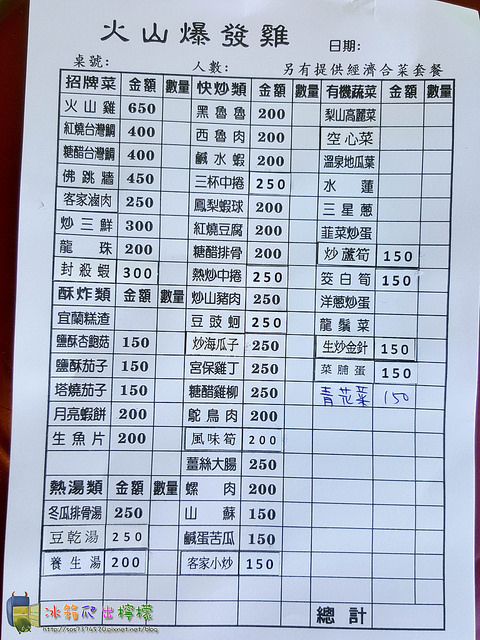 火山爆發雞
日期:
桌號: 人數: 另有提供經濟合菜套餐
招牌菜 金額 數量 快炒類 金額 數量 有機蔬菜 金額 數量
火山雞 650 黑魯魯 200 梨山高麗菜
紅燒台灣鯛 400 西魯肉 200 空心菜
糖醋台灣鯛 400 鹹水蝦 200 溫泉地瓜葉
佛跳牆 450 三杯中捲 250 水蓮
客家滷肉 250 鳳梨蝦球 200 三星蔥
炒三鮮 300 紅燒豆腐 200 韮菜炒蛋
龍珠 200 糖醋排骨 200 炒蘆筍 150
封殺蝦 300 熱炒中捲 250 筊白筍 150
酥炸類 金額 數量 炒山豬肉 250 洋蔥炒蛋
宜蘭糕渣 豆豉蚵 250 龍鬚菜
鹽酥杏鮑菇 150 炒海瓜子 250 生炒金針 150
鹽酥茄子 150 宮保雞丁 250 菜脯蛋 150
塔燒茄子 150 糖醋雞柳 250 青花菜 150
月亮蝦餅 200 鴕鳥肉 200
生魚片 200 風味筍 200
薑絲大腸 250
熱湯類 金額 數量 螺肉 200
冬瓜排骨湯 250 山蘇 150
豆乾湯 250 鹹蛋苦瓜 150
養生湯 200 客家小炒 150
總計
冰箱爬出檸檬